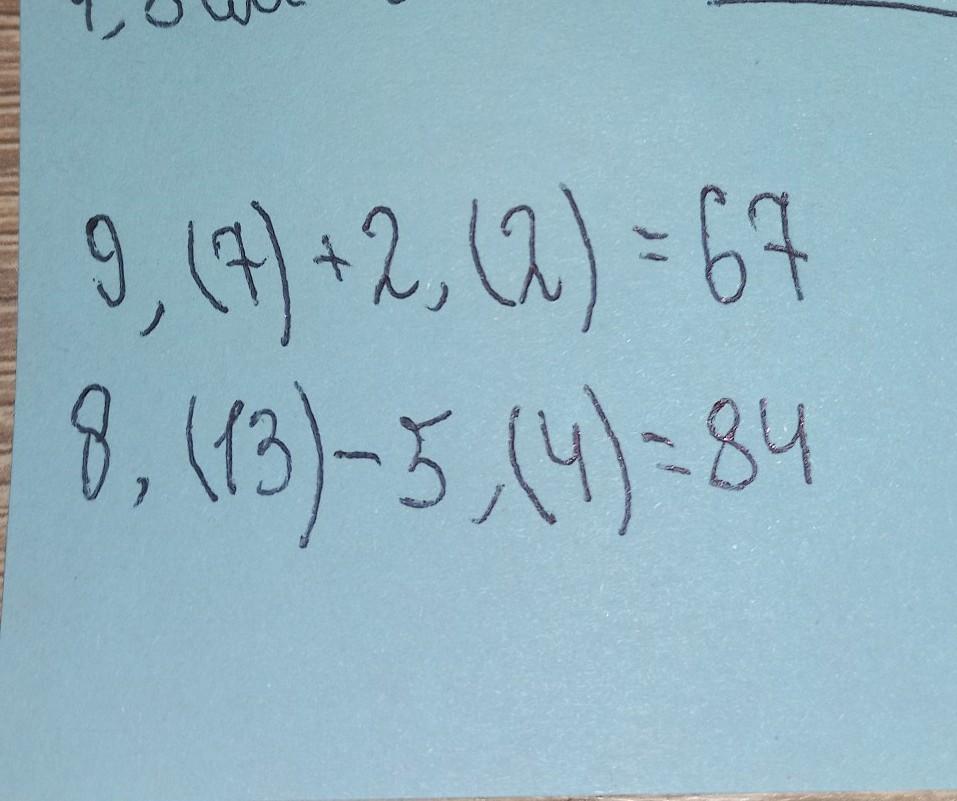 9,(7)+2,(2)=67
8,(13)-5,(4)=84